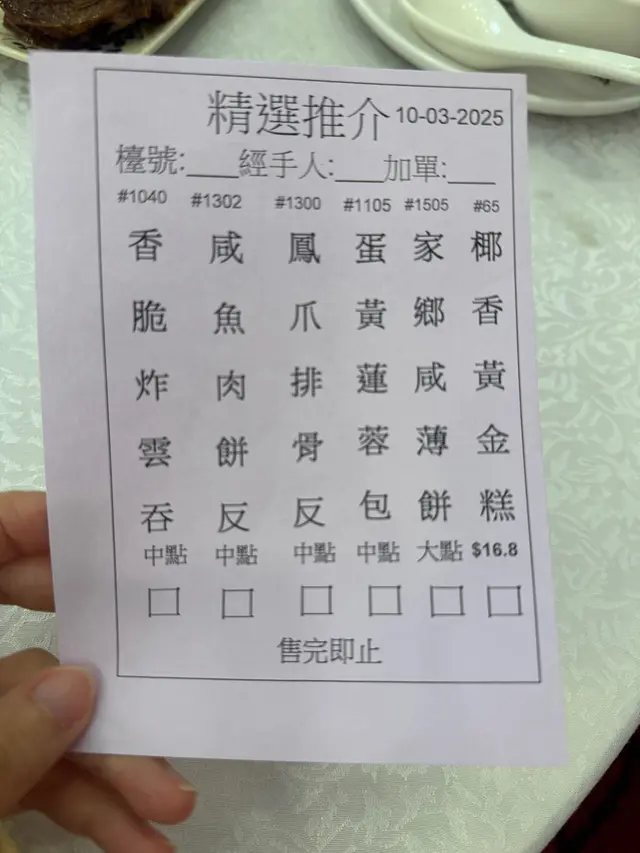 精選推介 10-03-2025
檯號:___經手人:___加單:___
#1040 #1302 #1300 #1105 #1505 #65
香脆炸雲吞 中點 □
咸魚肉餅反 中點 □
鳳爪排骨反 中點 □
蛋黃蓮蓉包 中點 □
家鄉咸薄餅 大點 □
椰香黃金糕 $16.8 □
售完即止